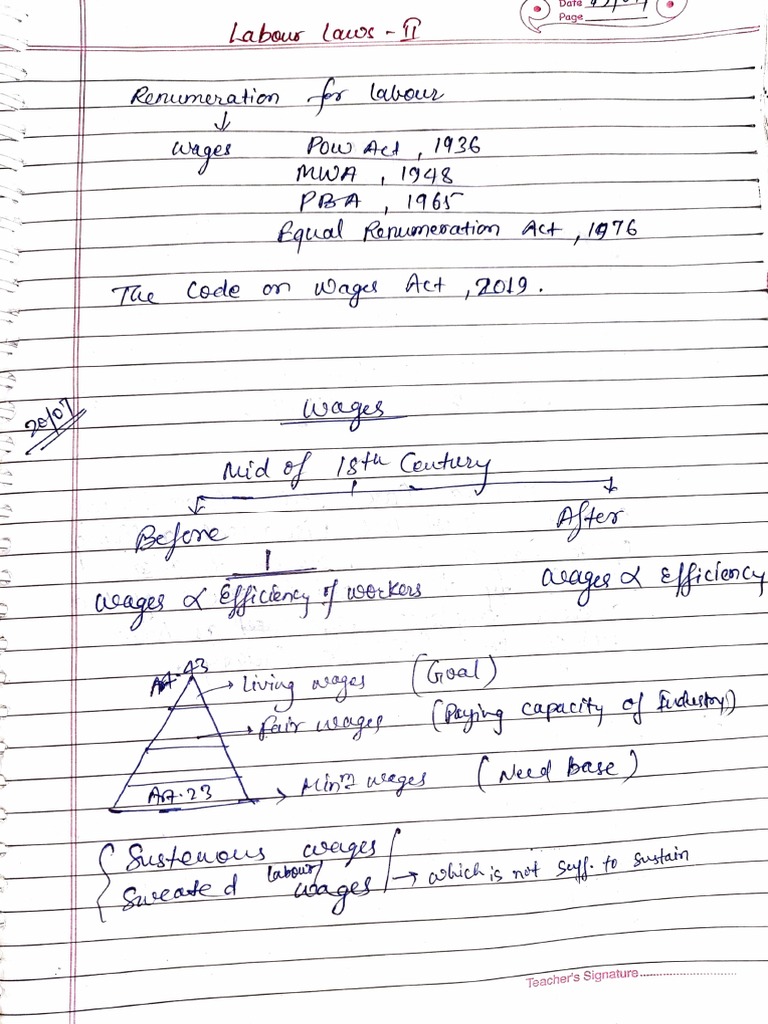 Date
Page
Labour Laws - II
Renumeration for labour
↓
Wages POW Act, 1936
MWA, 1948
PBA, 1965
Equal Renumeration Act, 1976
The Code on Wages Act, 2019.
20/07
Wages
Mid of 18th Century
Before After
Wages ∝ 1/Efficiency of workers Wages ∝ Efficiency
Art. 43 → Living wages (Goal)
→ Fair wages (Paying capacity of Industry)
Art. 23 → Minm wages (Need base)
Sustenous wages
Sweated labour wages → which is not suff. to sustain
Teacher's Signature